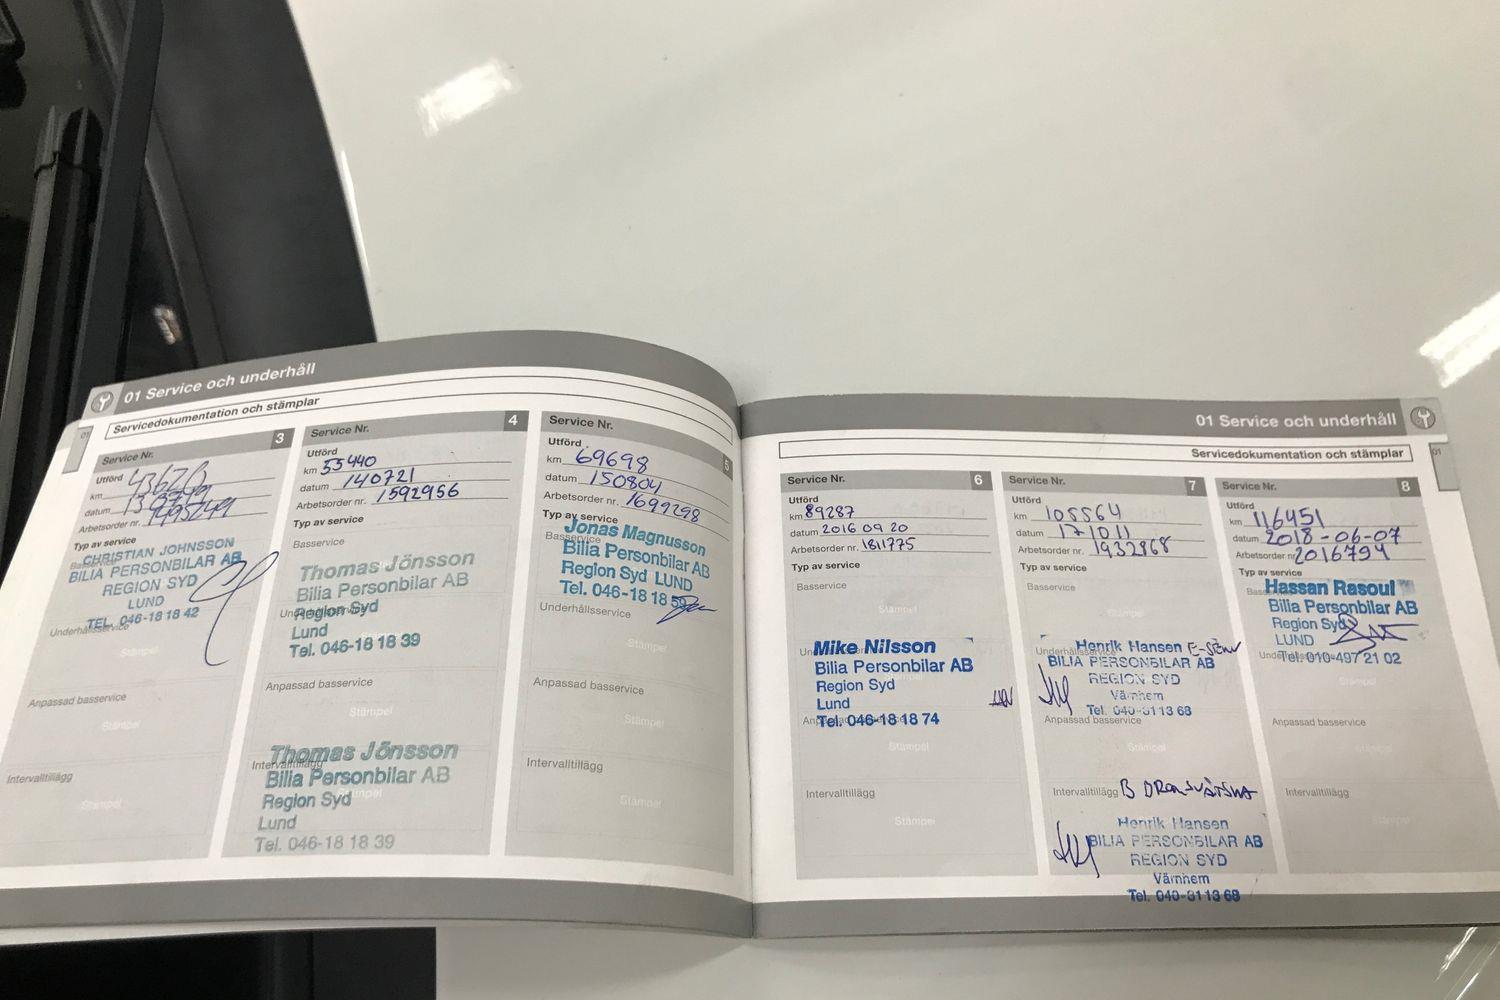 01 Service och underhåll
Servicedokumentation och stämplar
01
Service Nr. 3
Utförd
km 43620
datum
Arbetsorder nr.
Typ av service
CHRISTIAN JOHNSSON
BILIA PERSONBILAR AB
REGION SYD
LUND
TEL. 046-18 18 42
Underhållsservice
Stämpel
Anpassad basservice
Stämpel
Intervalltillägg
Stämpel
Service Nr. 4
Utförd
km 55440
datum 140721
Arbetsorder nr. 1592956
Typ av service
Basservice
Thomas Jönsson
Bilia Personbilar AB
Region Syd
Lund
Tel. 046-18 18 39
Anpassad basservice
Stämpel
Intervalltillägg
Thomas Jönsson
Bilia Personbilar AB
Region Syd
Lund
Tel. 046-18 18 39
Service Nr. 5
Utförd
km 69698
datum 150804
Arbetsorder nr. 1699298
Typ av service
Jonas Magnusson
Bilia Personbilar AB
Region Syd LUND
Tel. 046-18 18
Underhållsservice
Stämpel
Anpassad basservice
Stämpel
Intervalltillägg
Stämpel
01 Service och underhåll
Servicedokumentation och stämplar
01
Service Nr. 6
Utförd
km 89287
datum 2016 09 20
Arbetsorder nr. 1811775
Typ av service
Basservice
Stämpel
Mike Nilsson
Bilia Personbilar AB
Region Syd
Lund
Tel. 046-18 18 74
Anpassad basservice
Stämpel
Intervalltillägg
Stämpel
Service Nr. 7
Utförd
km 105564
datum 171011
Arbetsorder nr. 1932868
Typ av service
Basservice
Stämpel
Underhållsservice
Henrik Hansen
BILIA PERSONBILAR AB
REGION SYD
Värnhem
Tel. 040-31 13 68
Anpassad basservice
Stämpel
Intervalltillägg
Henrik Hansen
BILIA PERSONBILAR AB
REGION SYD
Värnhem
Tel. 040-31 13 68
Service Nr. 8
Utförd
km 116451
datum 2018-06-07
Arbetsorder nr. 2016794
Typ av service
Hassan Rasoul
Bilia Personbilar AB
Region Syd
LUND
Tel. 010-497 21 02
Stämpel
Anpassad basservice
Stämpel
Intervalltillägg
Stämpel